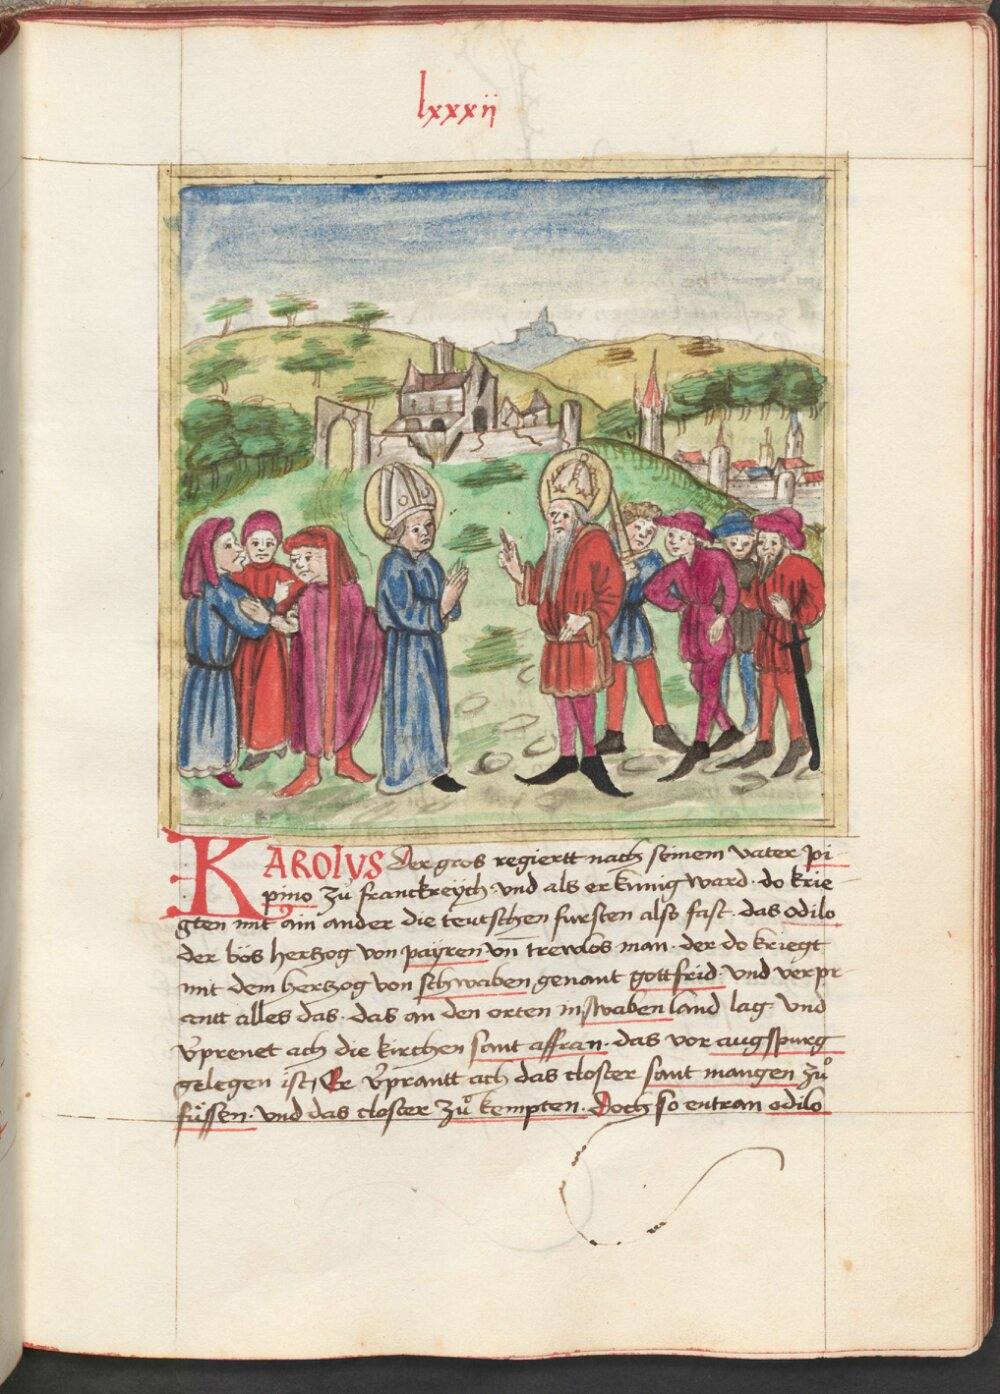 lxxxij
KAROLVS Der gros regiertt nach seinem vater pi
pino zů franckreÿch · und als er kunig ward · do krie
gten mit ain ander die teutschen fursten also fast · das odilo
der bös herzog von paÿren vn̄ trewlos man · der do kriegt
mit dem herzog von schwaben genant gottfrid · und verpr
antt alles das · das an den orten in swaben land lag · und
v̉prenet ach die kirchen sant affran · das vor augspurg
gelegen ist Er v̉prantt ach das closter sant mangen zů
füssen · und das closter zů kempten · Doch so entran odilo